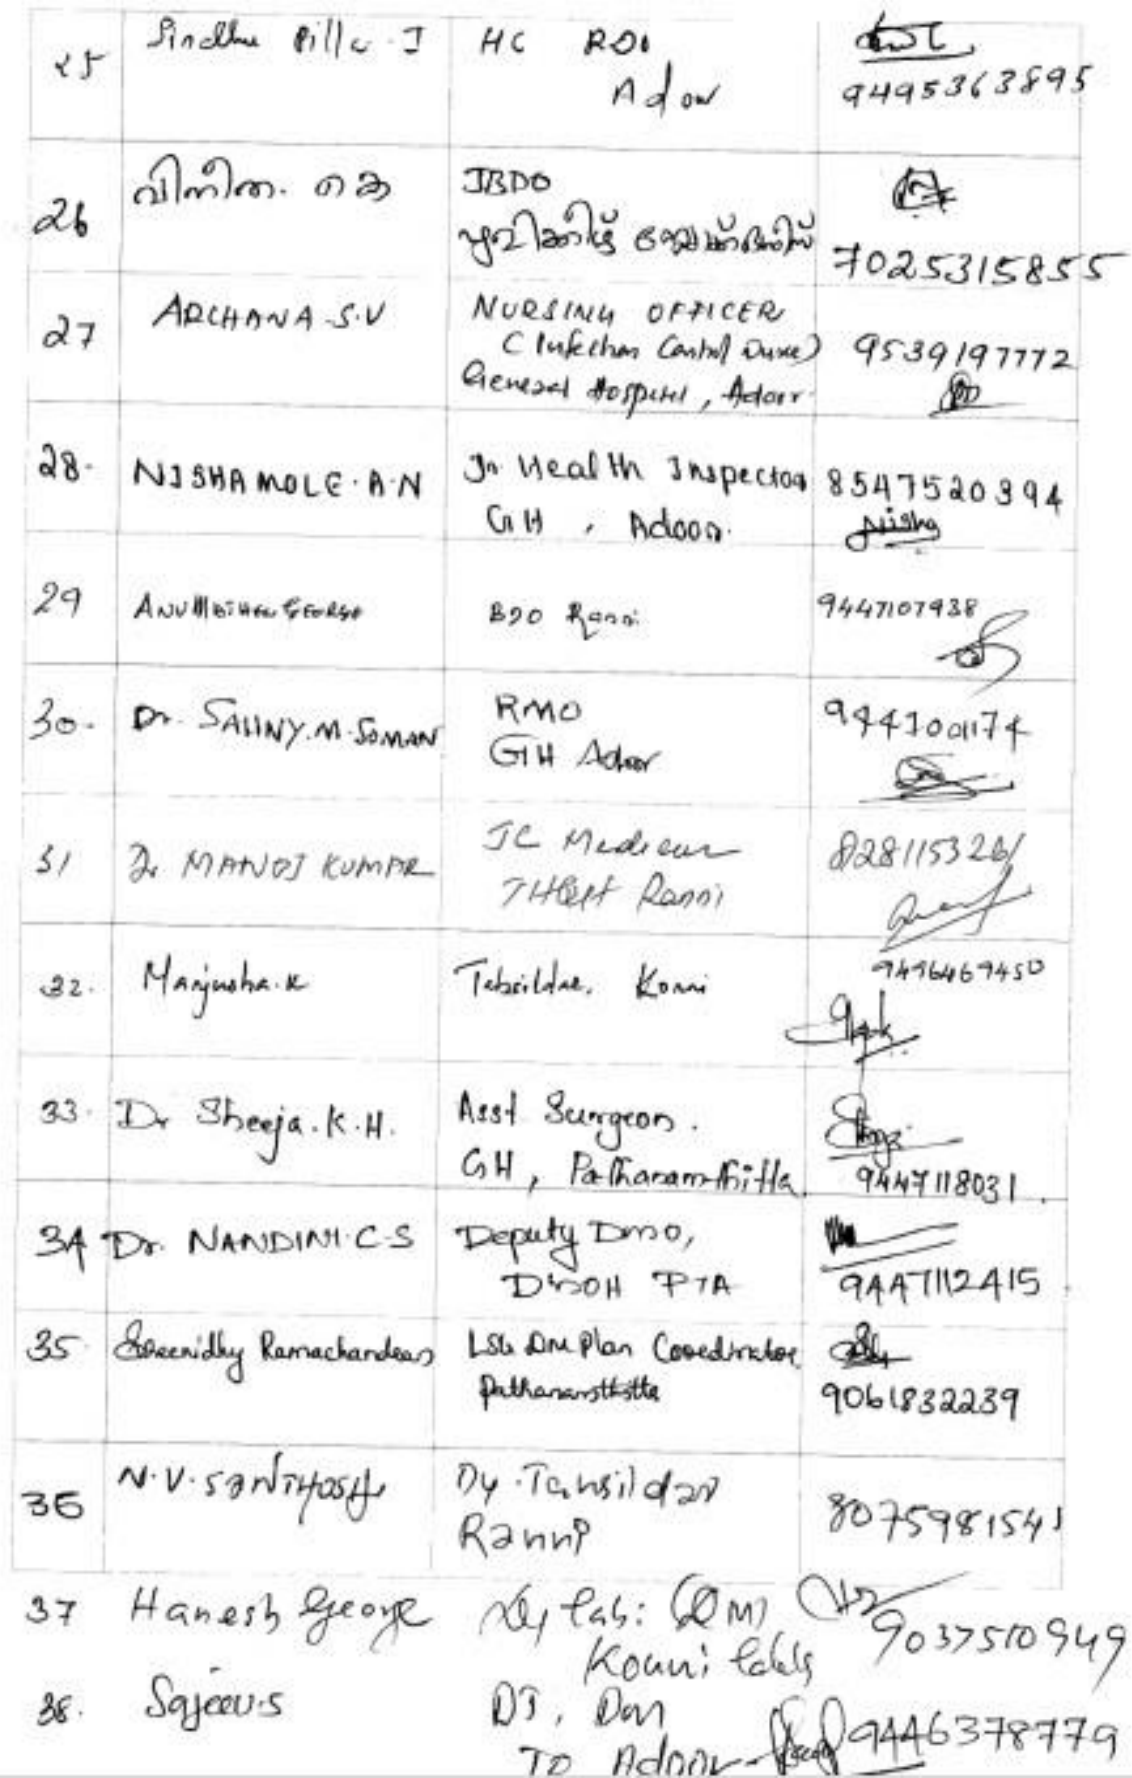 25 Sindhu Pilla. J HC RDO
Adoor
9495363895
26 വിനീത. കെ JBDO
7025315855
27 ARCHANA.S.V NURSING OFFICER
(Infection Control Nurse) 9539197772
General Hospital, Adoor
28. NISHAMOLE.A.N Jr Health Inspector 8547520394
GH, Adoor. Nisha
29 George BDO Ranni 9447107938
30. Dr. M. SOMAN RMO
GH Adoor
31 Dr MANOJ KUMAR JC
Ranni
32. Manjusha.K Tahsildar, Konni 9496469450
33. Dr Sheeja.K.H. Asst Surgeon.
GH, Pathanamthitta 9447118031
34 Dr. NANDINI.C.S Deputy DMO,
DMOH PTA 9447112415
35. Sreenidhy Ramachandran LSG DM Plan Coordinator
Pathanamthitta 9061832239
36 N.V.SANTHOSH Dy.Tahsildar
Ranni 8075981541
37 Hanesh George Dy Tah: (DM)
Konni 9037510949
38. Sajeev.S DT, DM
TO Adoor 9446378779